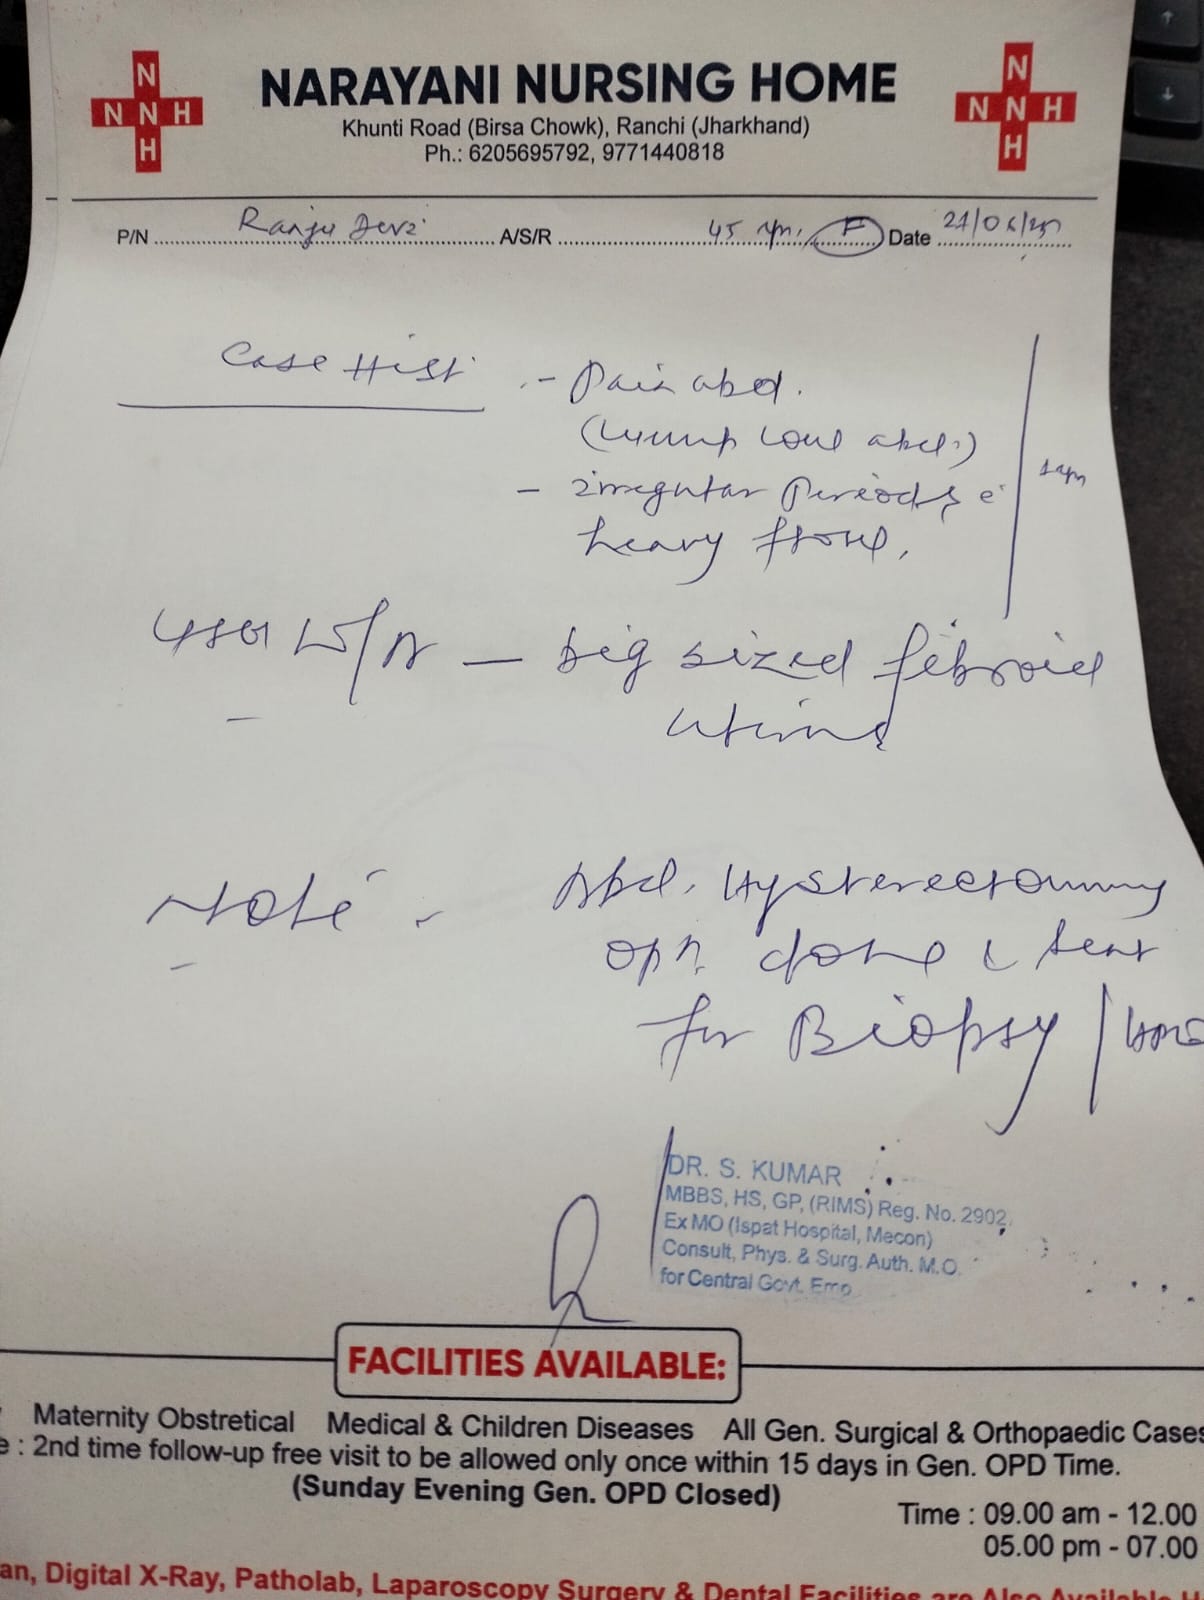 N
N N H
H
NARAYANI NURSING HOME
N
N N H
H
Khunti Road (Birsa Chowk), Ranchi (Jharkhand)
Ph.: 6205695792, 9771440818
P/N Ranju Devi A/S/R 45 F Date
Case Hist - Pain abd.
(Lump abd.)
- irregular Periods c
heavy flow.
USG W/A - big sized fibroid
uterus
Note - Abd. Hysterectomy
opn. done & sent
for Biopsy /
DR. S. KUMAR
MBBS, HS, GP, (RIMS) Reg. No. 2902,
Ex MO (Ispat Hospital, Mecon)
Consult, Phys. & Surg. Auth. M.O.
for Central Govt. Emp
FACILITIES AVAILABLE:
Maternity Obstretical Medical & Children Diseases All Gen. Surgical & Orthopaedic Cases
e : 2nd time follow-up free visit to be allowed only once within 15 days in Gen. OPD Time.
(Sunday Evening Gen. OPD Closed)
Time : 09.00 am - 12.00
05.00 pm - 07.00
an, Digital X-Ray, Patholab, Laparoscopy Surgery & Dental Facilities are Also Available